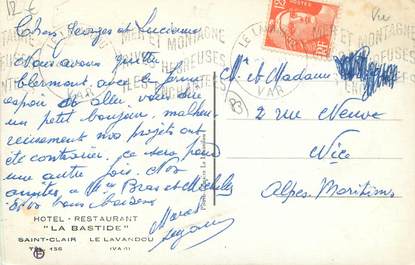 12 €
Vu
Chers Georges et Lucienne
Nous avons quitté
Clermont avec le ferme
espoir d'aller vous dire
un petit bonjour, malheu-
reusement nos projets ont
été contrariés. ce sera pour
une autre fois. Nos
amitiés à Mme Bras et Michelle
bons baisers
HOTEL - RESTAURANT
"LA BASTIDE"
SAINT-CLAIR LE LAVANDOU
TÉL. 136 (VAR)
LE LAVANDOU
VAR
MER ET MONTAGNE
HEUREUSES
MER ET MONTAGNE
HEUREUSES
POSTES
RF
12F
Mr et Madame
83
2 rue Neuve
Nice
Alpes Maritimes